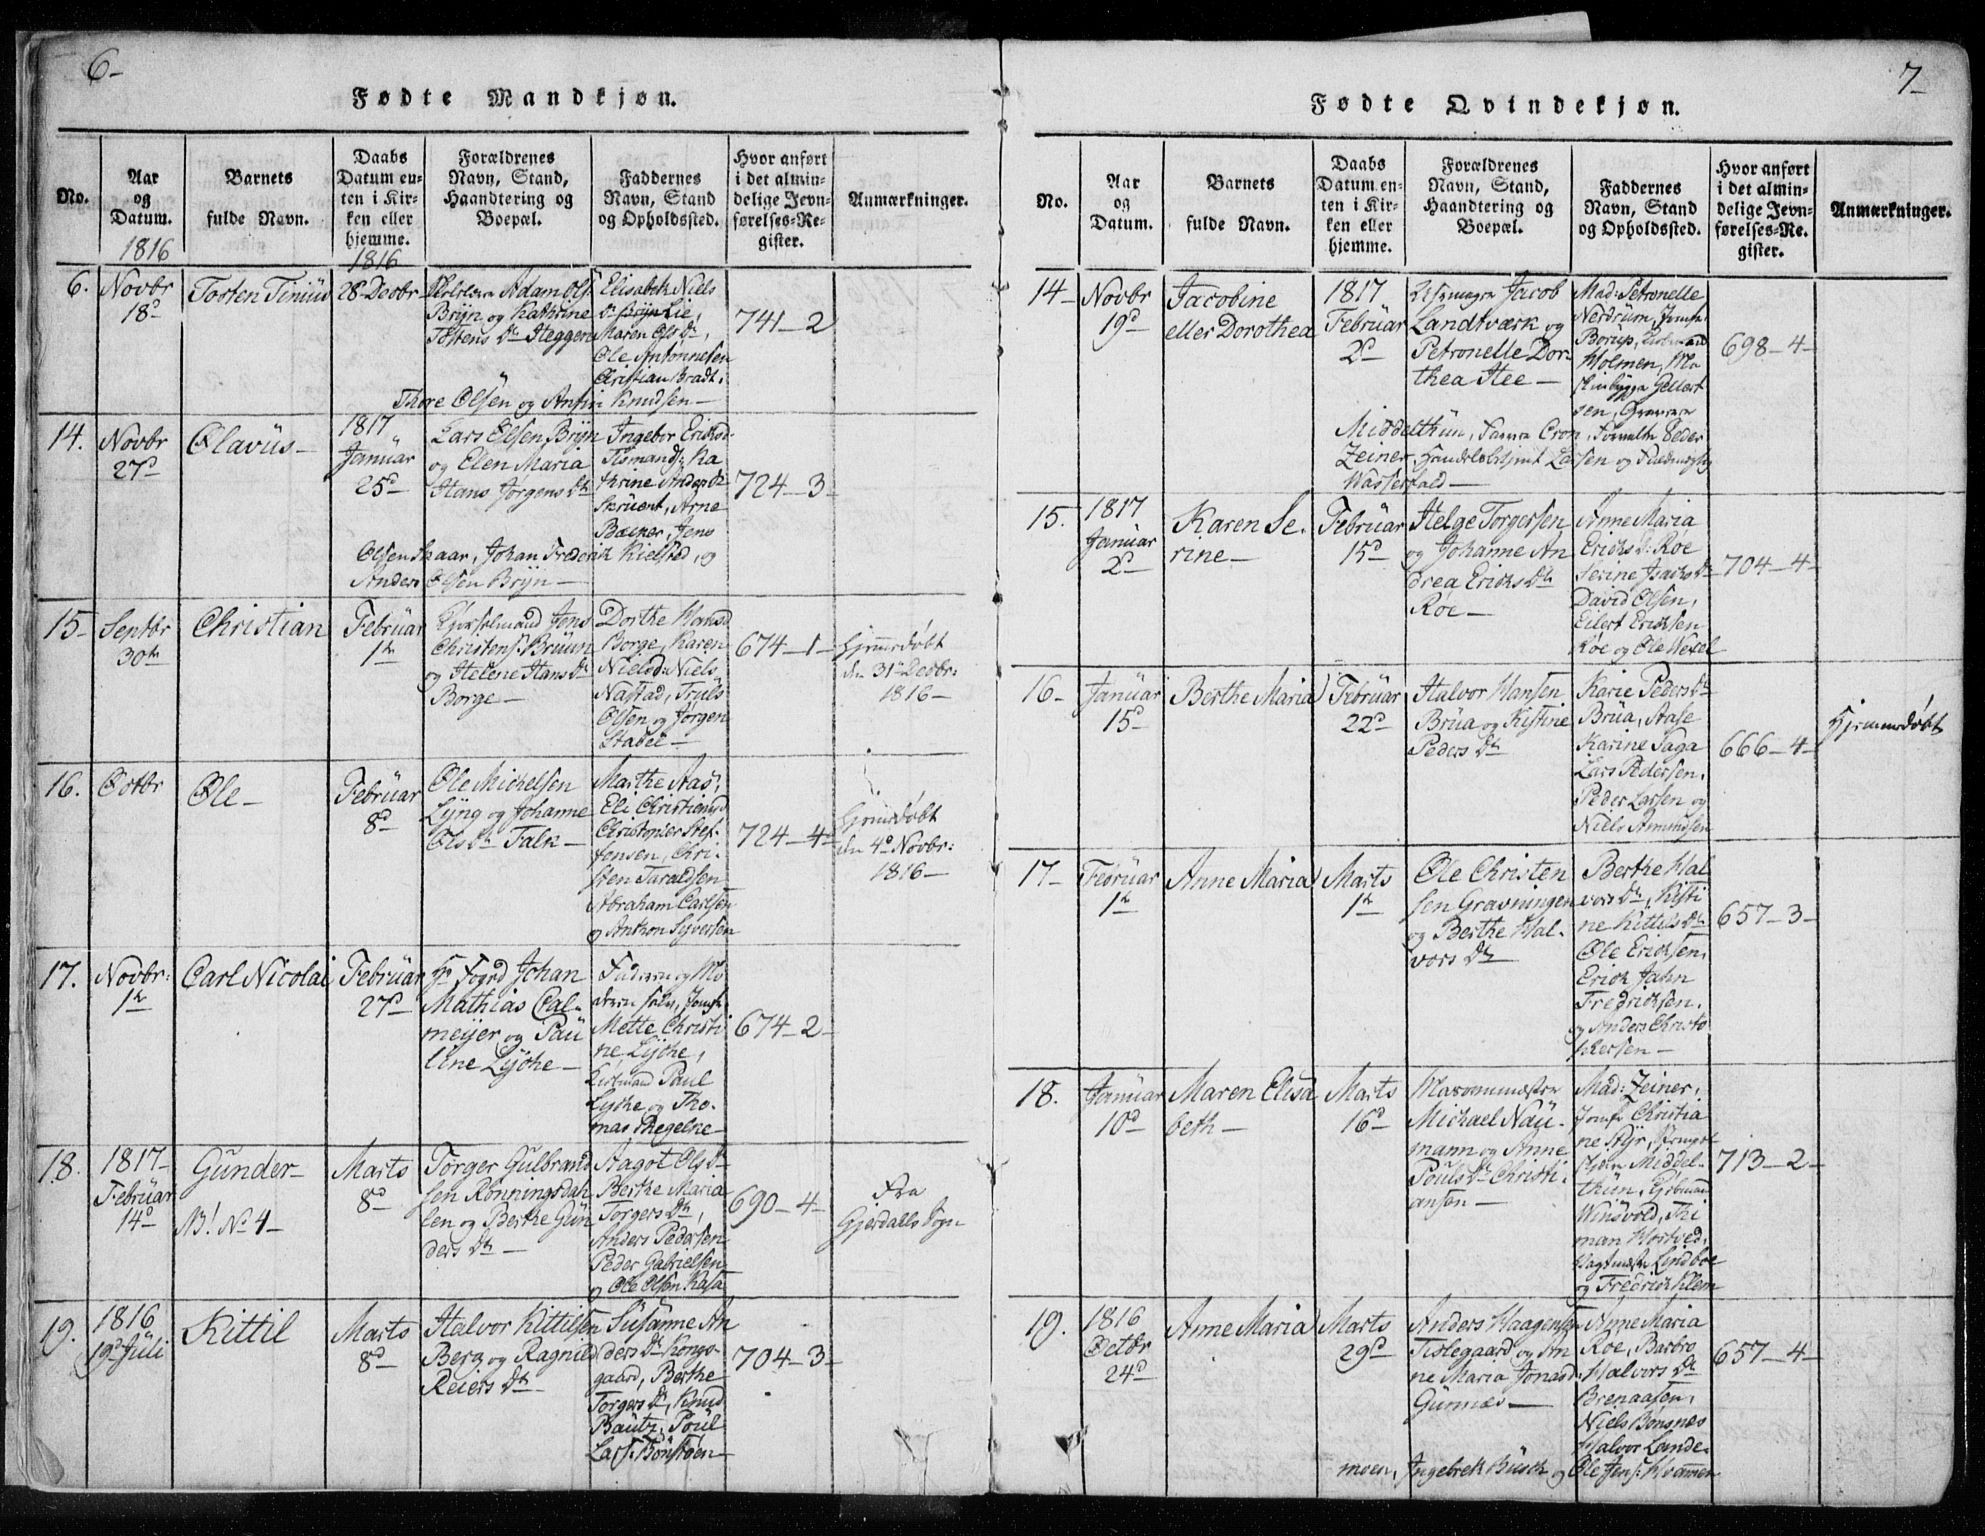 6-
Fødte Mandkjøn.
No.
Aar
og
Datum.
Barnets
fulde Navn.
Daabs
Datum en-
ten i Kir-
ken eller
hjemme.
Forældrenes
Navn, Stand,
Haandtering og
Boepæl.
Faddernes
Navn, Stand
og Opholdssted.
Hvor anført
i det almin-
delige Jevn-
førelses-Re-
gister.
Anmærkninger.
1816
1816
6.
Novbr
18d
Tosten Tinius
28d Decbr
Adam Ols
Bryn og Kathrine
Tostens Dtr Heggen
Elisabeth Niels
Dr Bryn Lie,
Maren Ols Dr,
Ole Antonnesen
Christian Bradt,
Thore Olsen og Anfin Knudsen-
741-2
14.
Novbr
27d
Olavus-
1817
Januar
25d
Lars Olsen Bryn
og Elen Maria
Hans Jørgens Dtr
Ingebor Eriksd.
Tismand, Ka
thrine Anders Dr
Skruent, Arne
Bæiner, Jens
Olsen Skaar, Johan Frederik Kielsted, og
Anders Olsen Bryn-
724-3-
15-
Septbr
30te
Christian
Februar
1te
Jens
Christens. Bruun
og Helene Hans Dtr
Borge-
Dorthe Hansd
Borge, Karen
Nielsd, Niels
Nastad, Truls
Olsen og Jørgen
Stabee-
674-1-
Hjemmedøbt
den 31te Decbr:
1816-
16.
Octbr
Ole-
Februar
8d
Ole Michelsen
Lyng og Johanne
Ols Dtr Falk-
Marthe Aas,
Eli Christiansd
Christopher Stef-
fensen, Chri-
sten Taraldsen
Abraham Carlsen
og Anthon Syversen
724-4-
Hjemmedøbt
den 4d Novbr:
1816-
17.
Novbr:
1te
Carl Nicolai
Februar
27d
Hr Foged Johan
Mathias Cal-
meyer og Pau
line Lyche-
Faderen og Mo
deren selv, Jomfr.
Mette Christi
ne Lyche,
Paul
Lyche og Tho-
mas Thegelne
674-2-
18.
1817-
Februar
14d
Gunder-
N.B! No 4-
Marts
8d
Torger Gulbrand
sen Rønningsdah
len og Berthe Gun
ders Dtr-
Aagot Ols D-
Berthe Maria
Torgers Dtr,
Anders Pedersen
Peder Gabrielsen
og Ole Olsen Kasa-
690-4-
Fra
Gjerdalls Sogn-
19.
1816
19d Juli
Kittil
Marts
8d
Halvor Kittilsen
Berg og Ragnild
Reiers Dtr
Susanne An
ders Dtr Kongs-
gaard, Berthe
Torgers Dr, Knud
Bautz, Poul
Lars. Bonstøen-
704-3-
7-
Fødte Qvindekjøn.
No.
Aar
og
Datum.
Barnets
fulde Navn.
Daabs
Datum en-
ten i Kir-
ken eller
hjemme.
Forældrenes
Navn, Stand,
Haandtering og
Boepæl.
Faddernes
Navn, Stand
og Opholdssted.
Hvor anført
i det almin-
delige Jevn-
førelses-Re-
gister.
Anmærkninger.
14-
Novbr
19d
Jacobine
eller Dorothea
1817
Februar
2d
Jacob
Landtværk og
Petronelle Dor-
thea Hee-
Mad: Petronelle
Nerdrum, Jomfr.
Borup,
Holmen, Ma
skinbygger Gellert
sen,
Middelthun, Cron, Peder
Zeiner, Larsen og
Wasserfald-
698-4-
15.
1817
Januar
2d
Karen Se-
rine-
Februar
15d
Helge Torgersen
og Johanne An
drea Erichs Dtr
Roe-
Anne Maria
Erichs D: Roe
Serine Isachs Dtr
David Olsen,
Eilert Erichsen
Roe og Ole Wexel
704-4-
16-
Januar
15d
Berthe Maria
Februar
22d
Halvor Hansen
Brua og Kistine
Peders Dtr
Karie Peders Dtr
Brua, Aase
Karine Saga
Lars Pedersen,
Peder Larsen og
Niels Amundsen
666-4-
Hjemmedøbt
17-
Februar
1te
Anne Maria
Marts
1te
Ole Christen
sen Gravningen
og Berthe Hal-
vors Dtr
Berthe Hal
vors Dtr, Kisti
ne Kittils Dtr
Ole Erichsen,
Erich Jahn
Fredrichsen,
og Anders Christo
phersen-
657-3-
18.
Januar
10d
Maren Elisa
beth-
Marts
16d
Michael Nau-
mann og Anne
Pouls Dtr Christi-
ansen-
Mad: Zeiner,
Jomfr Christia
ne Styr,
Middel-
thun,
Winsvold, Thi
man Kortved,
Vagtmester Lyndboe
og Fredrich Klem
713-2-
19.
1816
Octbr
24d
Anne Maria
Marts
29d
Anders Haagensen
Tislegaard og An
ne Maria Jonasd.
Gunnæs-
Anne Maria
Roe, Barbro
Halvors Dtr
Brenaasen,
Niels Bønsnes
Halvor Lande-
moen, Ingebreth Busch og Ole Jens: Kvammen
657-4-